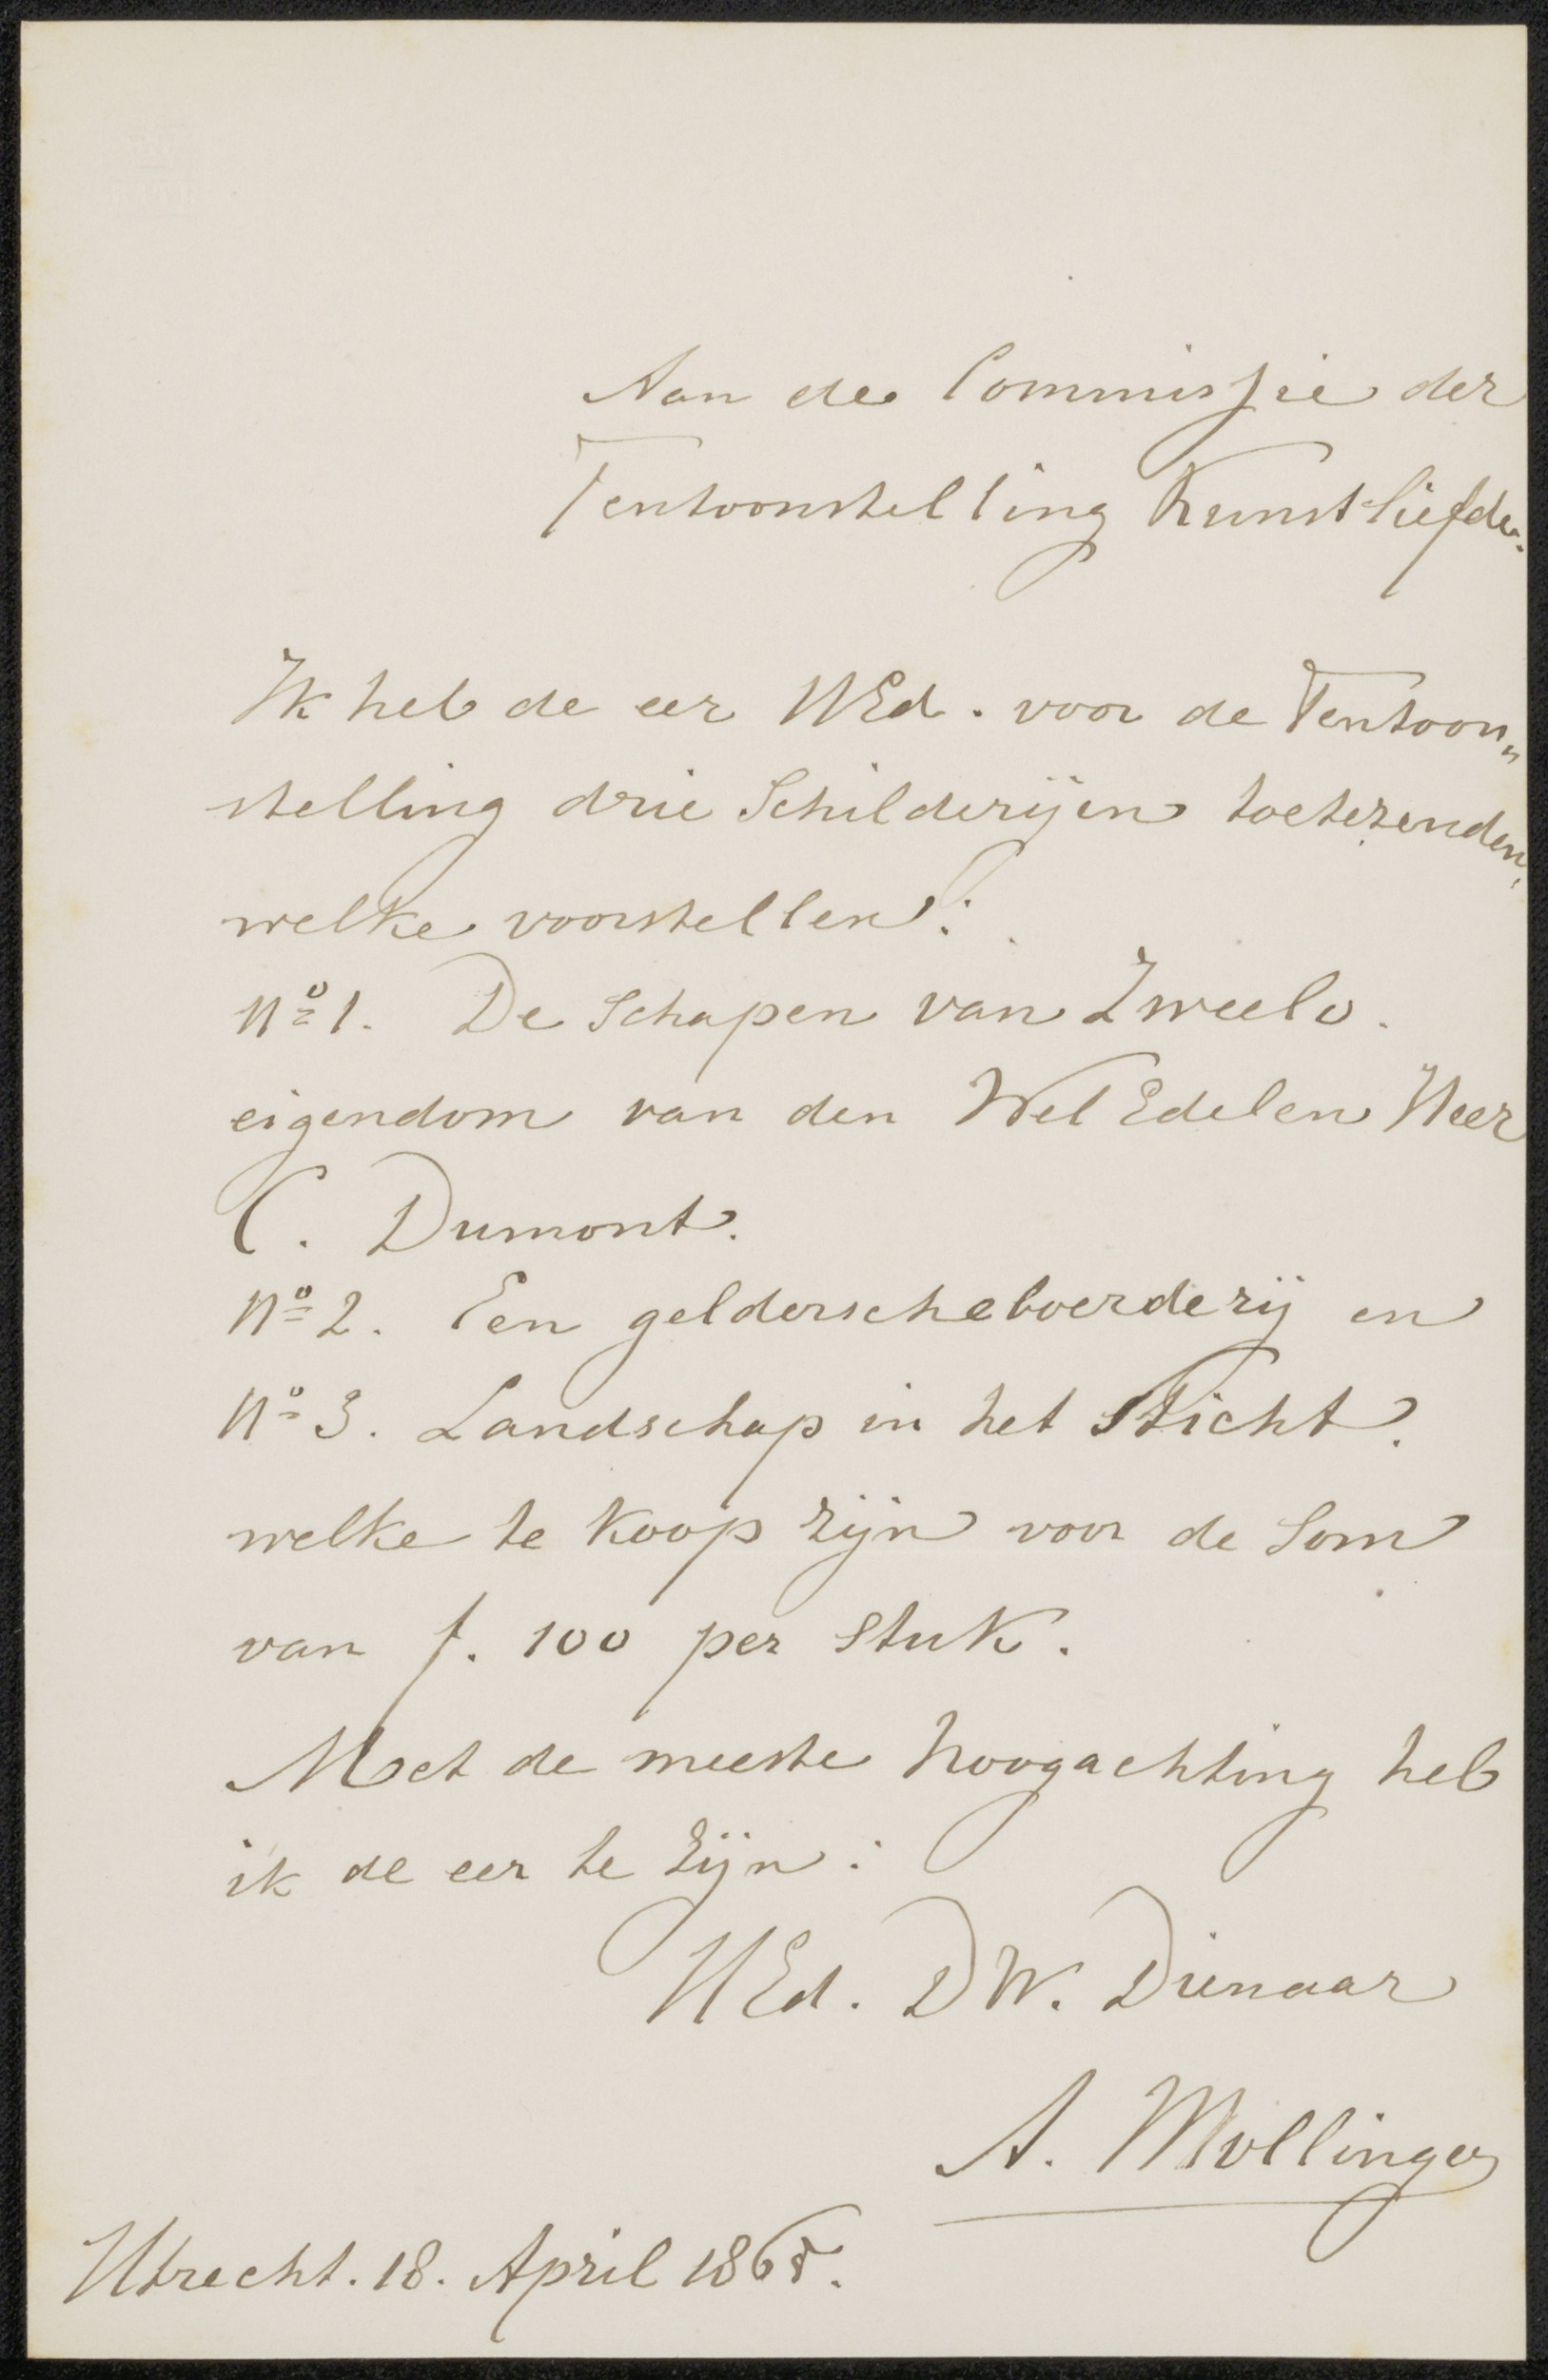 Aan de Commissie der
Tentoonstelling Kunstliefde.
Ik heb de eer UEd. voor de Tentoon„
stelling drie Schilderijen toetezenden,
welke voorstellen:
No 1. De Schapen van Zweelo.
eigendom van den Wel Edelen Heer
C. Dumont.
No 2. Een geldersche boerderij en
No 3. Landschap in het Sticht.
welke te koop zijn voor de Som
van f. 100 per Stuk.
Met de meeste hoogachting heb
ik de eer te zijn:
UEd. DW. Dienaar
A. Mollinger
Utrecht. 18. April 1865.